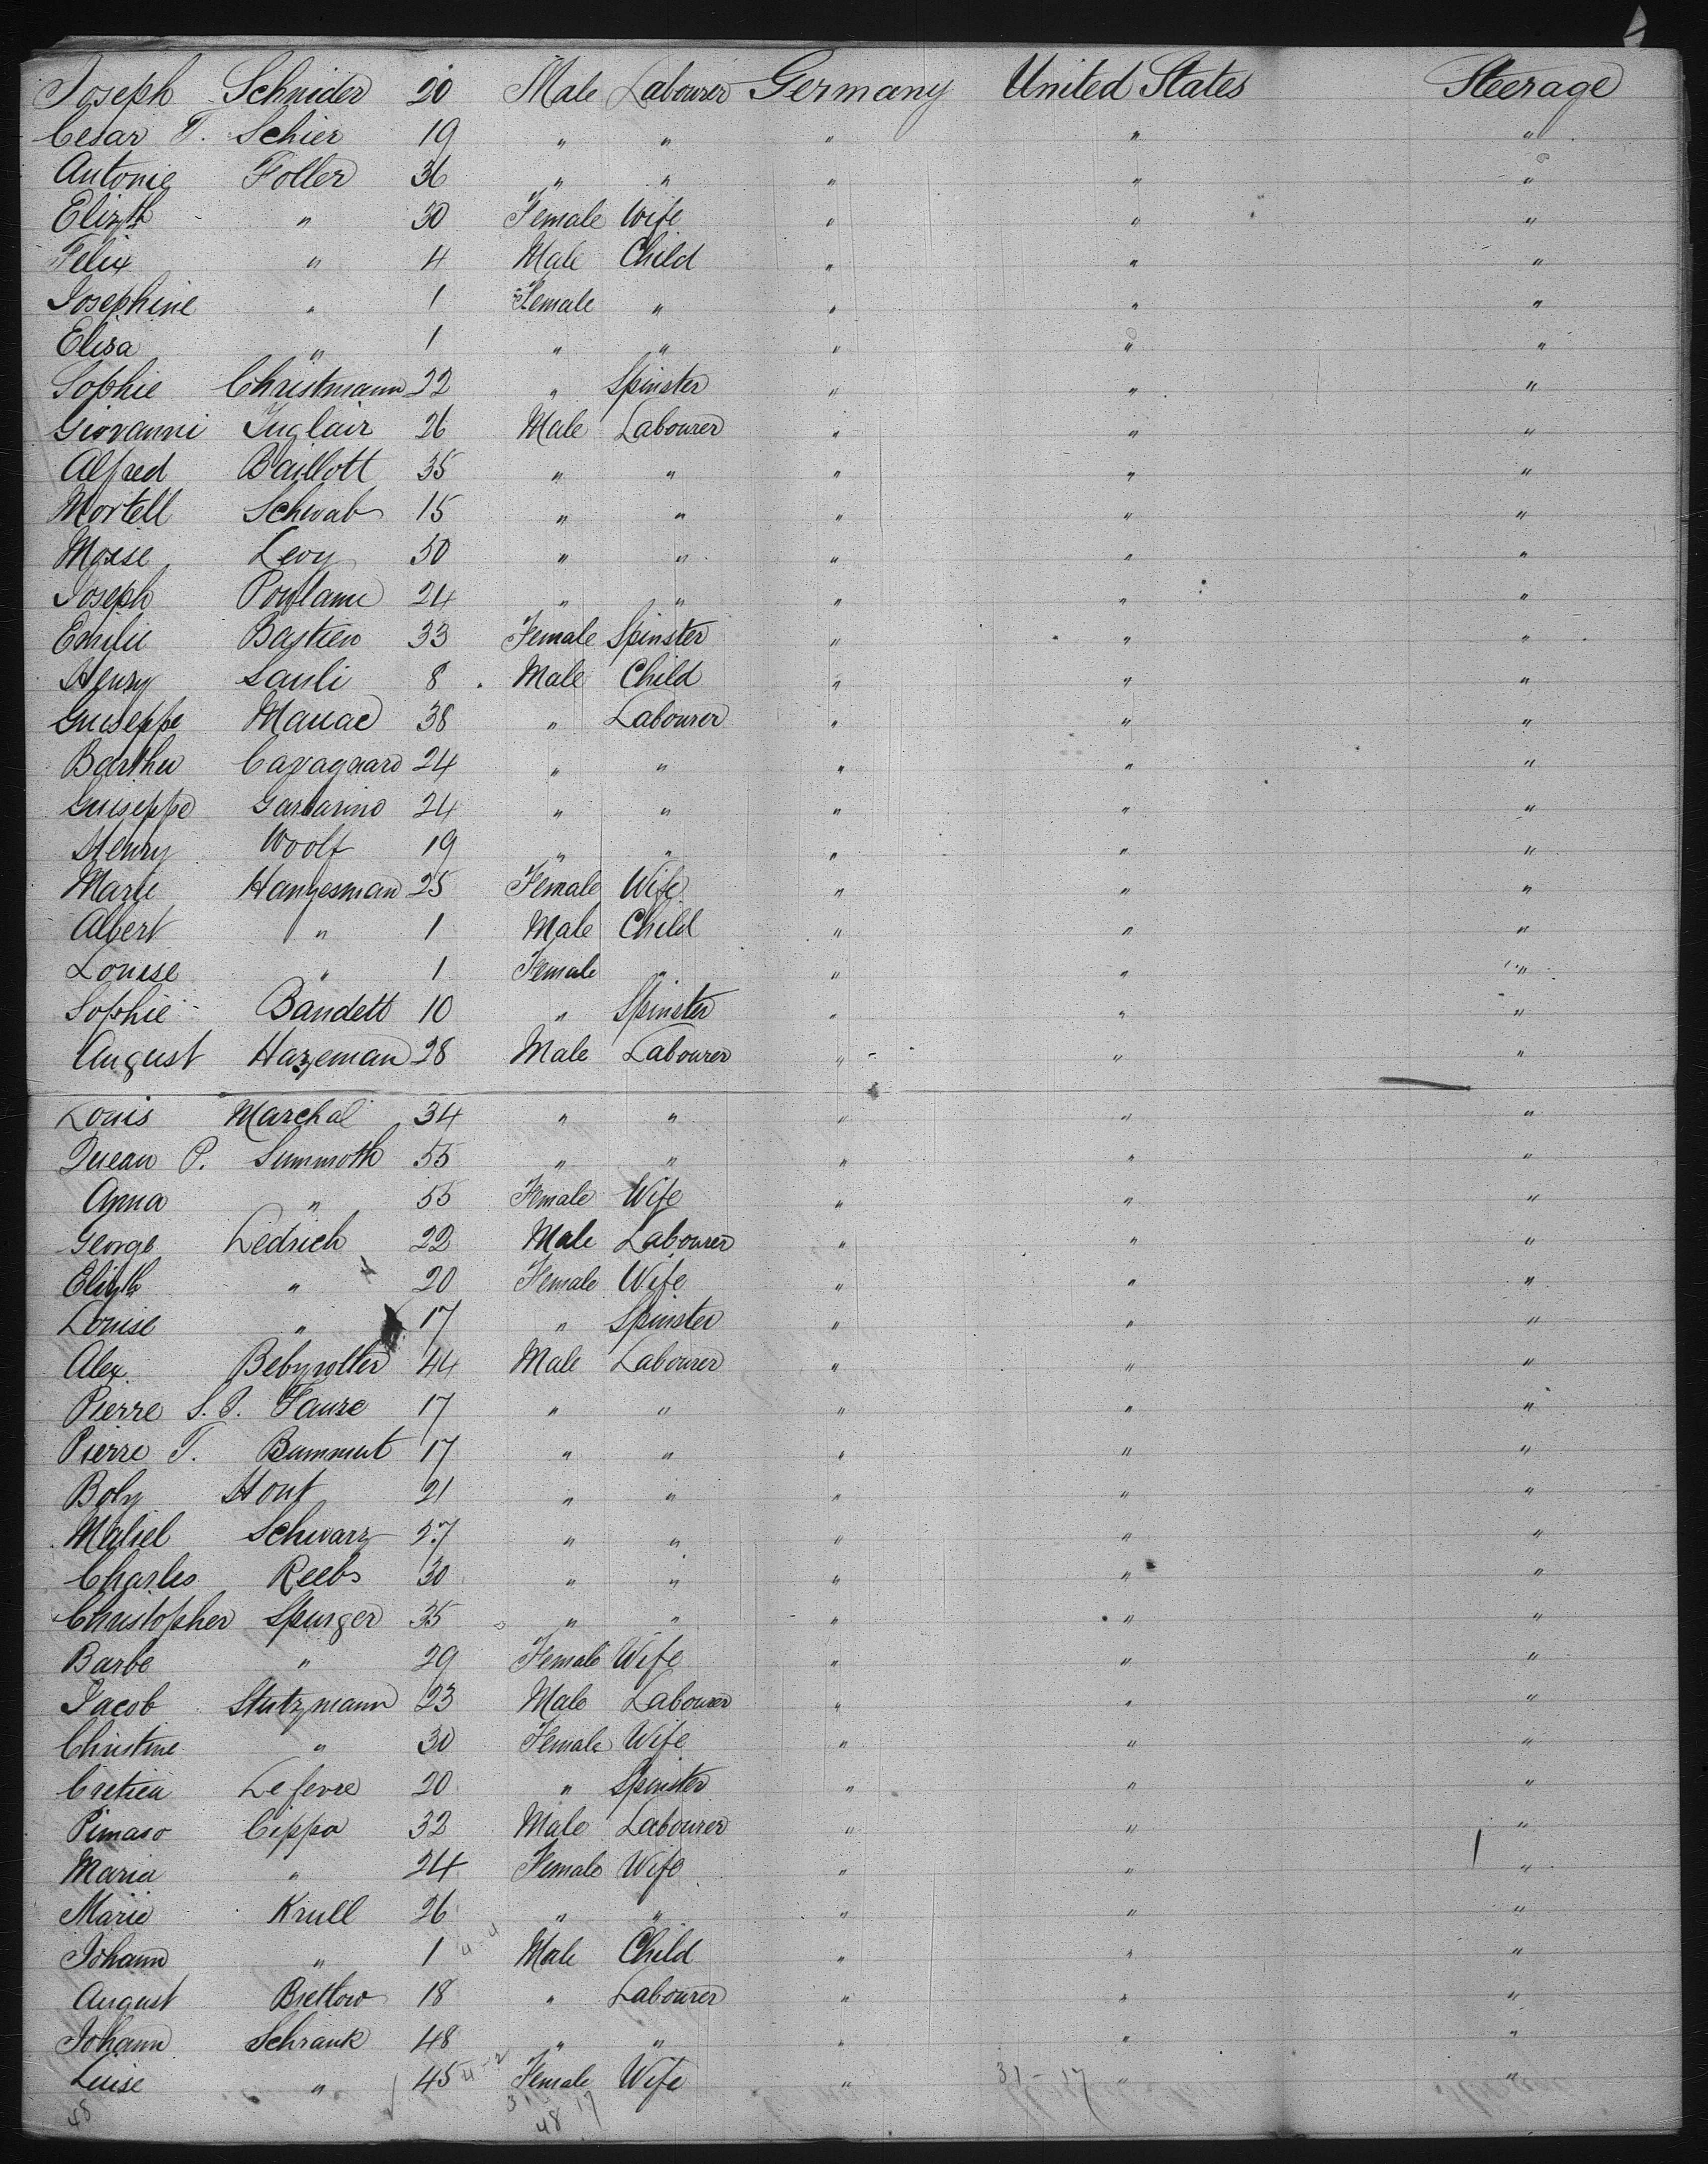 Joseph Schnider 20 Male Labourer Germany United States Steerage
Cesar T. Schier 19 " " " " "
Antonie Foller 36 " " " " "
Elizth " 30 Female Wife " " "
Felix " 4 Male Child " " "
Josephine " 1 Female " " " "
Elisa " 1 " " " " "
Sophie Christmann 22 " Spinster " " "
Giovanni Juglair 26 Male Labourer " " "
Alfred Baillott 35 " " " " "
Mortell Schwab 15 " " " " "
Moise Levy 50 " " " " "
Joseph 24 " " " " "
Emilie Bastien 33 Female Spinster " " "
Henry Sauli 8 Male Child " " "
Guiseppe 38 " Labourer " " "
Barthu Cavagnaro 24 " " " " "
Guiseppe Garbarino 24 " " " " "
Henry Woolf 19 " " " " "
Marie Hanzesman 25 Female Wife " " "
Albert " 1 Male Child " " "
Louise " 1 Female " " " "
Sophie Bandett 10 " Spinster " " "
August Hazeman 28 Male Labourer " " "
Louis Marchal 34 " " " " "
P. Summoth 55 " " " " "
Anna " 55 Female Wife " " "
George Ledrich 22 Male Labourer " " "
Elizth " 20 Female Wife " " "
Louise " 17 " Spinster " " "
Alex. 44 Male Labourer " " "
Pierre S. J. Faure 17 " " " " "
Pierre T. Bummut 17 " " " " "
Boly Hont 21 " " " " "
Maliel Schwarz 27 " " " " "
Charles Reebs 30 " " " " "
Christopher Spurger 35 " " " " "
Barbe " 29 Female Wife " " "
Jacob Stutzmann 23 Male Labourer " " "
Christine " 30 Female Wife " " "
Lefevre 20 " Spinster " " "
Pimaso Cippa 32 Male Labourer " " "
Maria " 24 Female Wife " " "
Marie Krull 26 " " " " "
Johann " 1 Male Child " " "
August Bretlow 18 " Labourer " " "
Johann Schrank 48 " " " " "
Luise " 45 Female Wife " " "
48 48 17 31-17